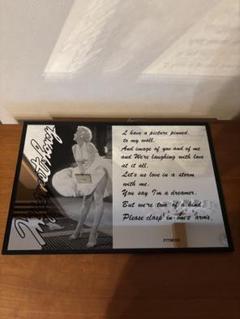 I have a picture pinned
to my wall.
And image of you and of me
and We're laughing with love
at it all.
Let's us love in a storm
with me.
You say I'm a dreamer.
But were two of a kind
Please clasp in your arms